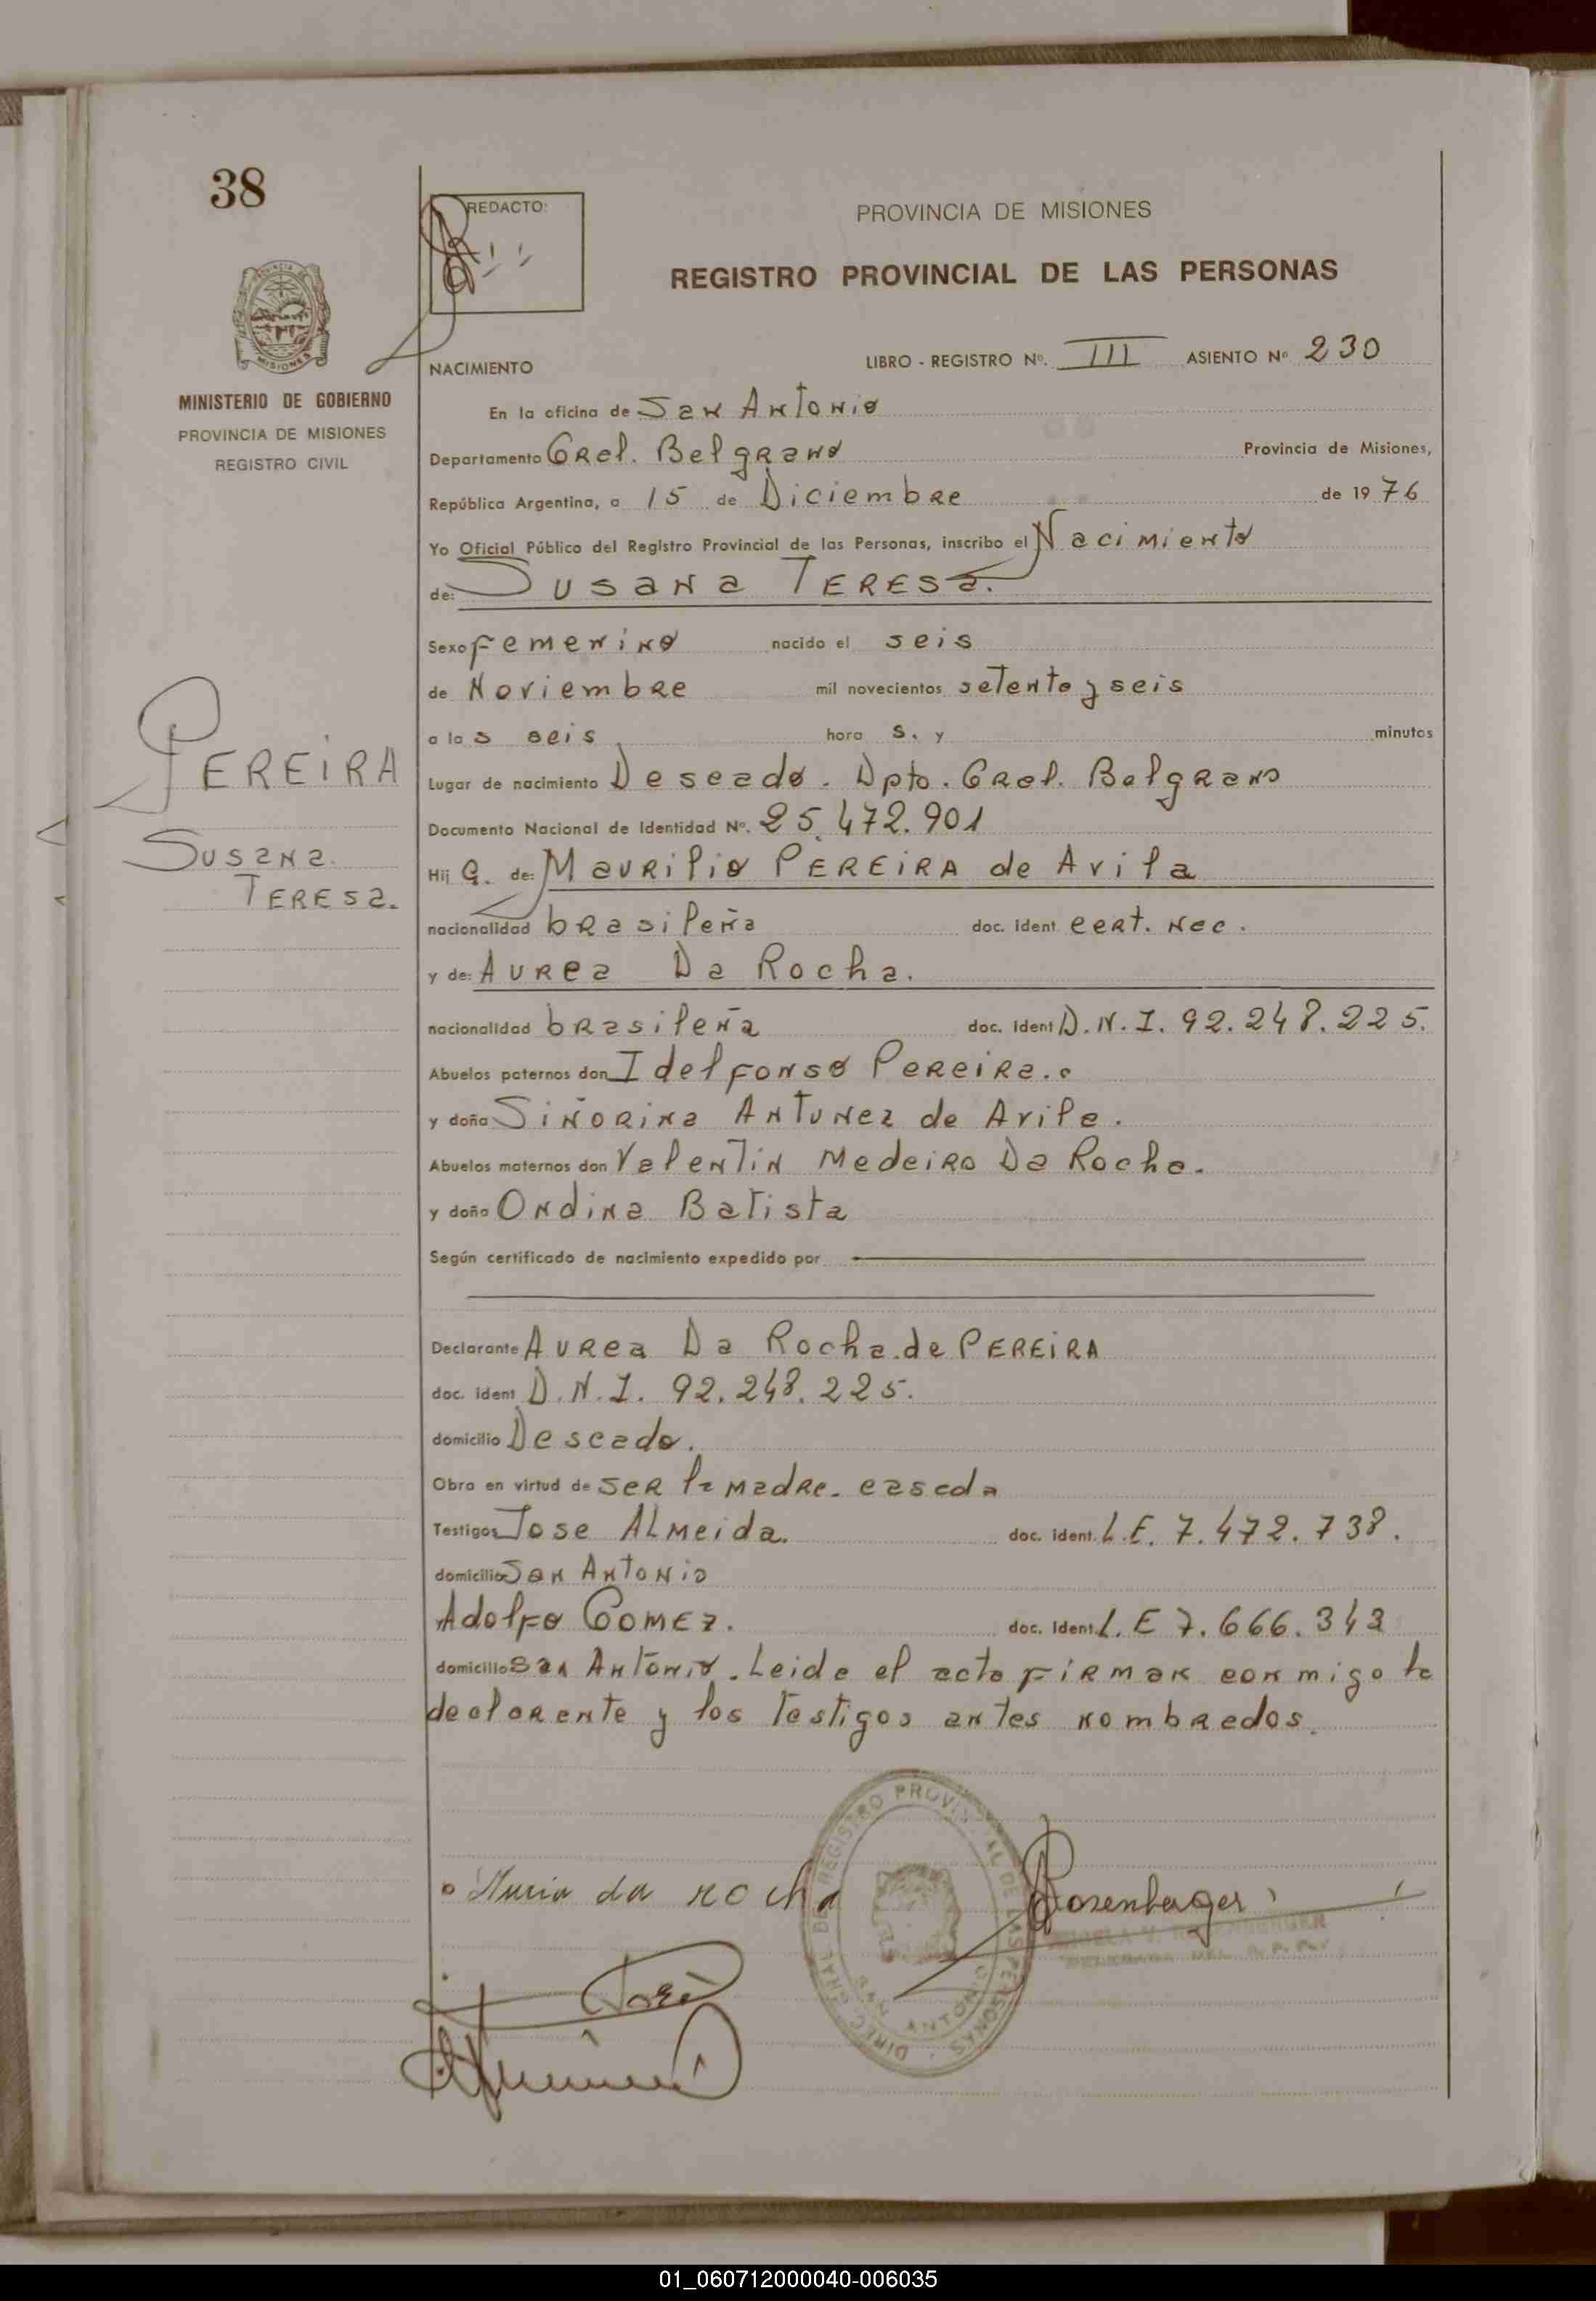 38
REDACTO:
PROVINCIA DE MISIONES
REGISTRO PROVINCIAL DE LAS PERSONAS
MISIONES
MINISTERIO DE GOBIERNO
PROVINCIA DE MISIONES
REGISTRO CIVIL
NACIMIENTO LIBRO - REGISTRO Nº. III ASIENTO Nº 230
En la oficina de San Antonio
Departamento Gral. Belgrano Provincia de Misiones,
República Argentina, a 15 de Diciembre de 1976
Yo Oficial Público del Registro Provincial de las Personas, inscribo el Nacimiento
de: Susana Teresa.
Sexo femenino nacido el seis
de Noviembre mil novecientos setenta y seis
a las seis hora s. y minutos
PEREIRA
Susana
Teresa.
Lugar de nacimiento Deseado. Dpto. Gral. Belgrano
Documento Nacional de Identidad Nº. 25.472.901
Hija. de: Maurilio PEREIRA de Avila
nacionalidad brasileña doc. ident cert. Nac.
y de: Aurea Da Rocha.
nacionalidad brasileña doc. ident D.N.I. 92.248.225.
Abuelos paternos don Idelfonso Pereira.
y doña Siñorina Antunez de Avila.
Abuelos maternos don Valentin Medeiro Da Rocha.
y doña Ondina Batista
Según certificado de nacimiento expedido por
Declarante Aurea Da Rocha de PEREIRA
doc. ident D.N.I. 92.248.225.
domicilio Deseado.
Obra en virtud de ser la madre. casada
Testigos Jose Almeida. doc. ident. L.E. 7.472.738.
domicilio San Antonio
Adolfo Gomez. doc. ident. L.E 7.666.343
domicilio San Antonio. Leida el acta firman conmigo la
declarante y los testigos antes nombrados.
da rocha
Rosenberger
DIREC. GRAL DEL REGISTRO PROVINCIAL DE LAS PERSONAS
SAN ANTONIO
José
01_060712000040-006035